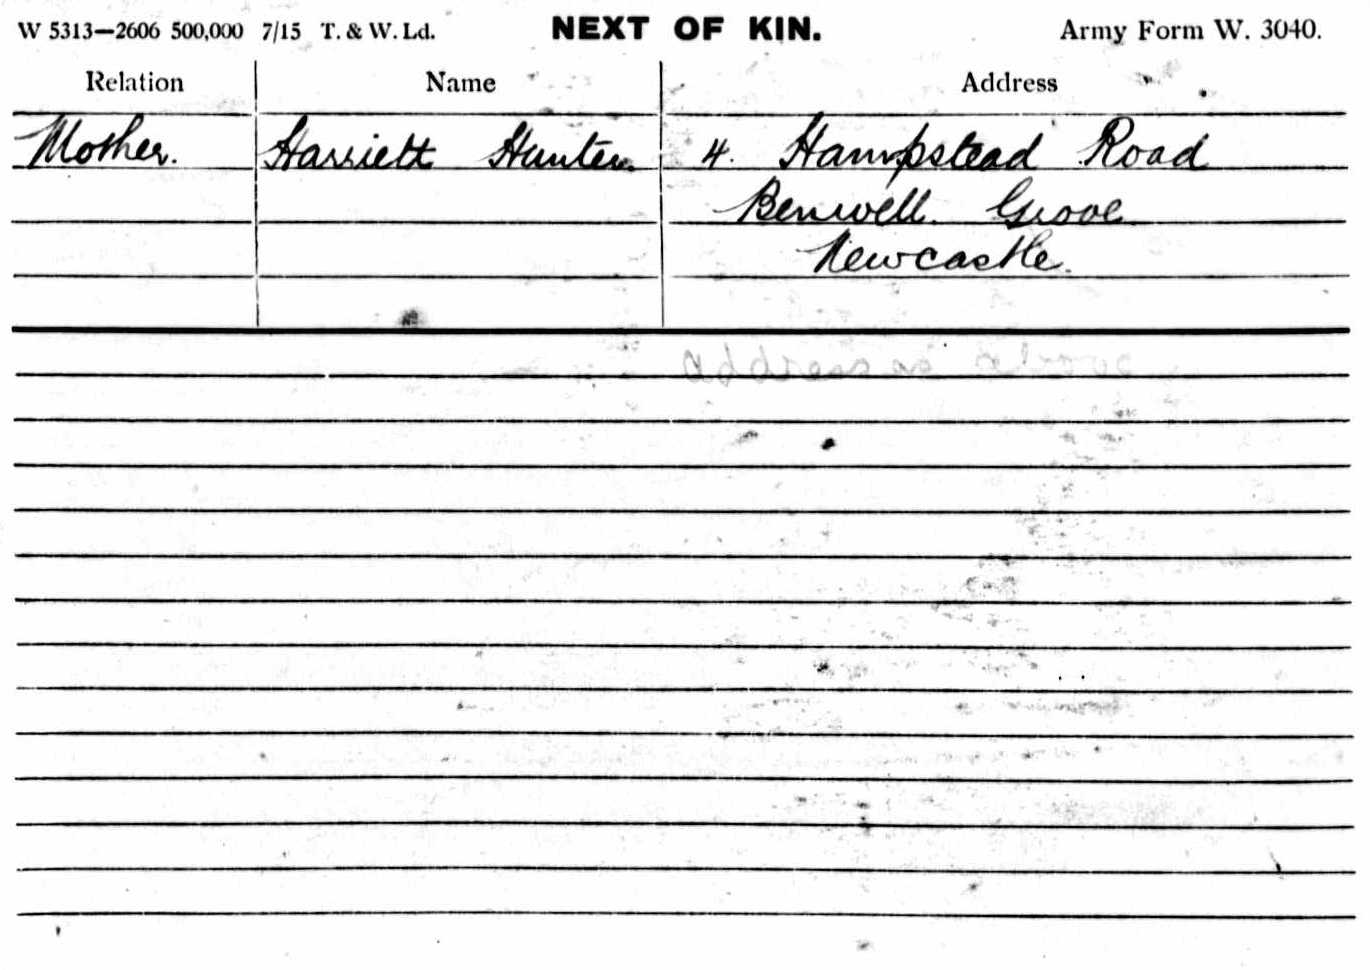 W 5313—2606 500,000 7/15 T. & W. Ld. NEXT OF KIN. Army Form W. 3040.
Relation Name Address
Mother. Harriett Hunter. 4. Hampstead Road
Benwell. Grove
Newcastle.